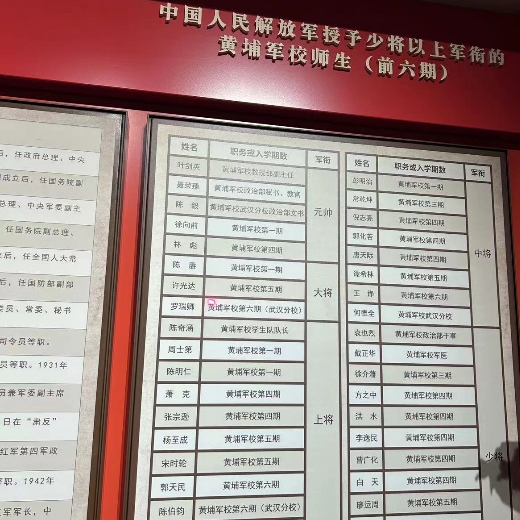 中国人民解放军授予少将以上军衔的
黄埔军校师生（前六期）
后，任政府总理、中央
成立后，任国务院副
总理、中央军委副主
任国务院副总理、
后，任全国人大常
后，任国防部副部
委员、常委、秘书
司令员等职。
员等职。1931年
员兼军委副主席
日在“肃反”
红军第四军政
等职。1942年
军军长，中
姓名 职务或入学期数 军衔
叶剑英 黄埔军校教授部副主任
聂荣臻 黄埔军校政治部秘书、教官
陈毅 黄埔军校武汉分校政治部文书 元帅
徐向前 黄埔军校第一期
林彪 黄埔军校第四期
陈赓 黄埔军校第一期
许光达 黄埔军校第五期 大将
罗瑞卿 黄埔军校第六期（武汉分校）
陈奇涵 黄埔军校学生队队长
周士第 黄埔军校第一期
陈明仁 黄埔军校第一期
萧克 黄埔军校第四期
张宗逊 黄埔军校第五期 上将
杨至成 黄埔军校第五期
宋时轮 黄埔军校第五期
郭天民 黄埔军校第六期
陈伯钧 黄埔军校第六期（武汉分校）
姓名 职务或入学期数 军衔
彭明治 黄埔军校第一期
常乾坤 黄埔军校第三期
倪志亮 黄埔军校第四期
郭化若 黄埔军校第四期 中将
唐天际 黄埔军校第四期
谭希林 黄埔军校第五期
王诤 黄埔军校第六期
何德全 黄埔军校武汉分校
袁也烈 黄埔军校政治部干事
戴正华 黄埔军校军医
徐介藩 黄埔军校第三期
方之中 黄埔军校第四期
洪水 黄埔军校第四期
李逸民 黄埔军校第四期
曹广化 黄埔军校第四期 少将
白天 黄埔军校第四期
廖运周 黄埔军校第五期